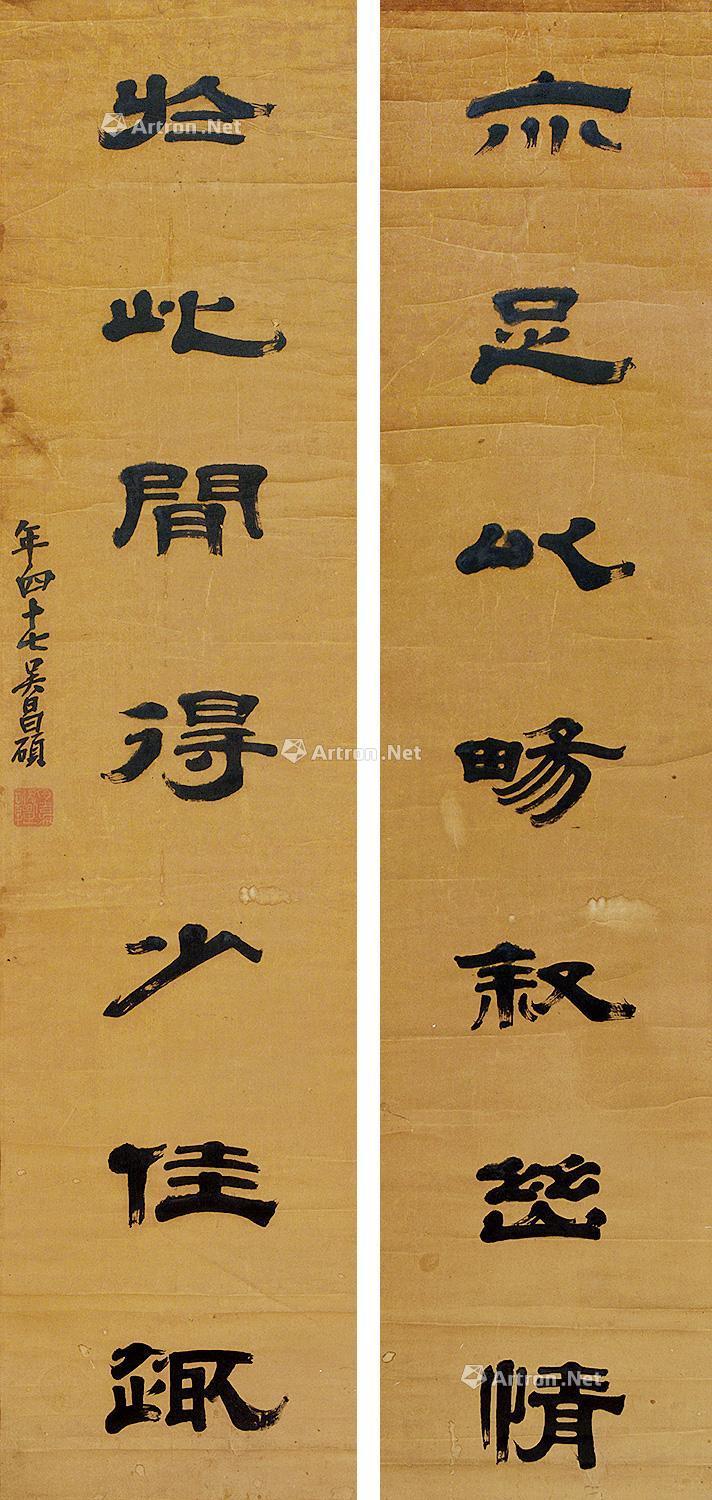 亦足以畼叙幽情
於此閒得少佳趣
年四十七吳昌碩
Artron.Net
Artron.Net
Artron.Net